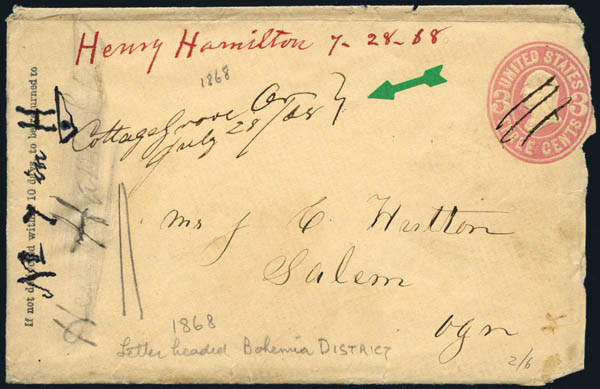 Henry Hamilton 7-28-68
1868
Cottage Grove Or
July 28/68
UNITED STATES
3 3
THREE CENTS
If not delivered within 10 days, to be returned to
Mr J C
Salem
Ogn
1868
Letter headed Bohemia DISTRICT
2/6